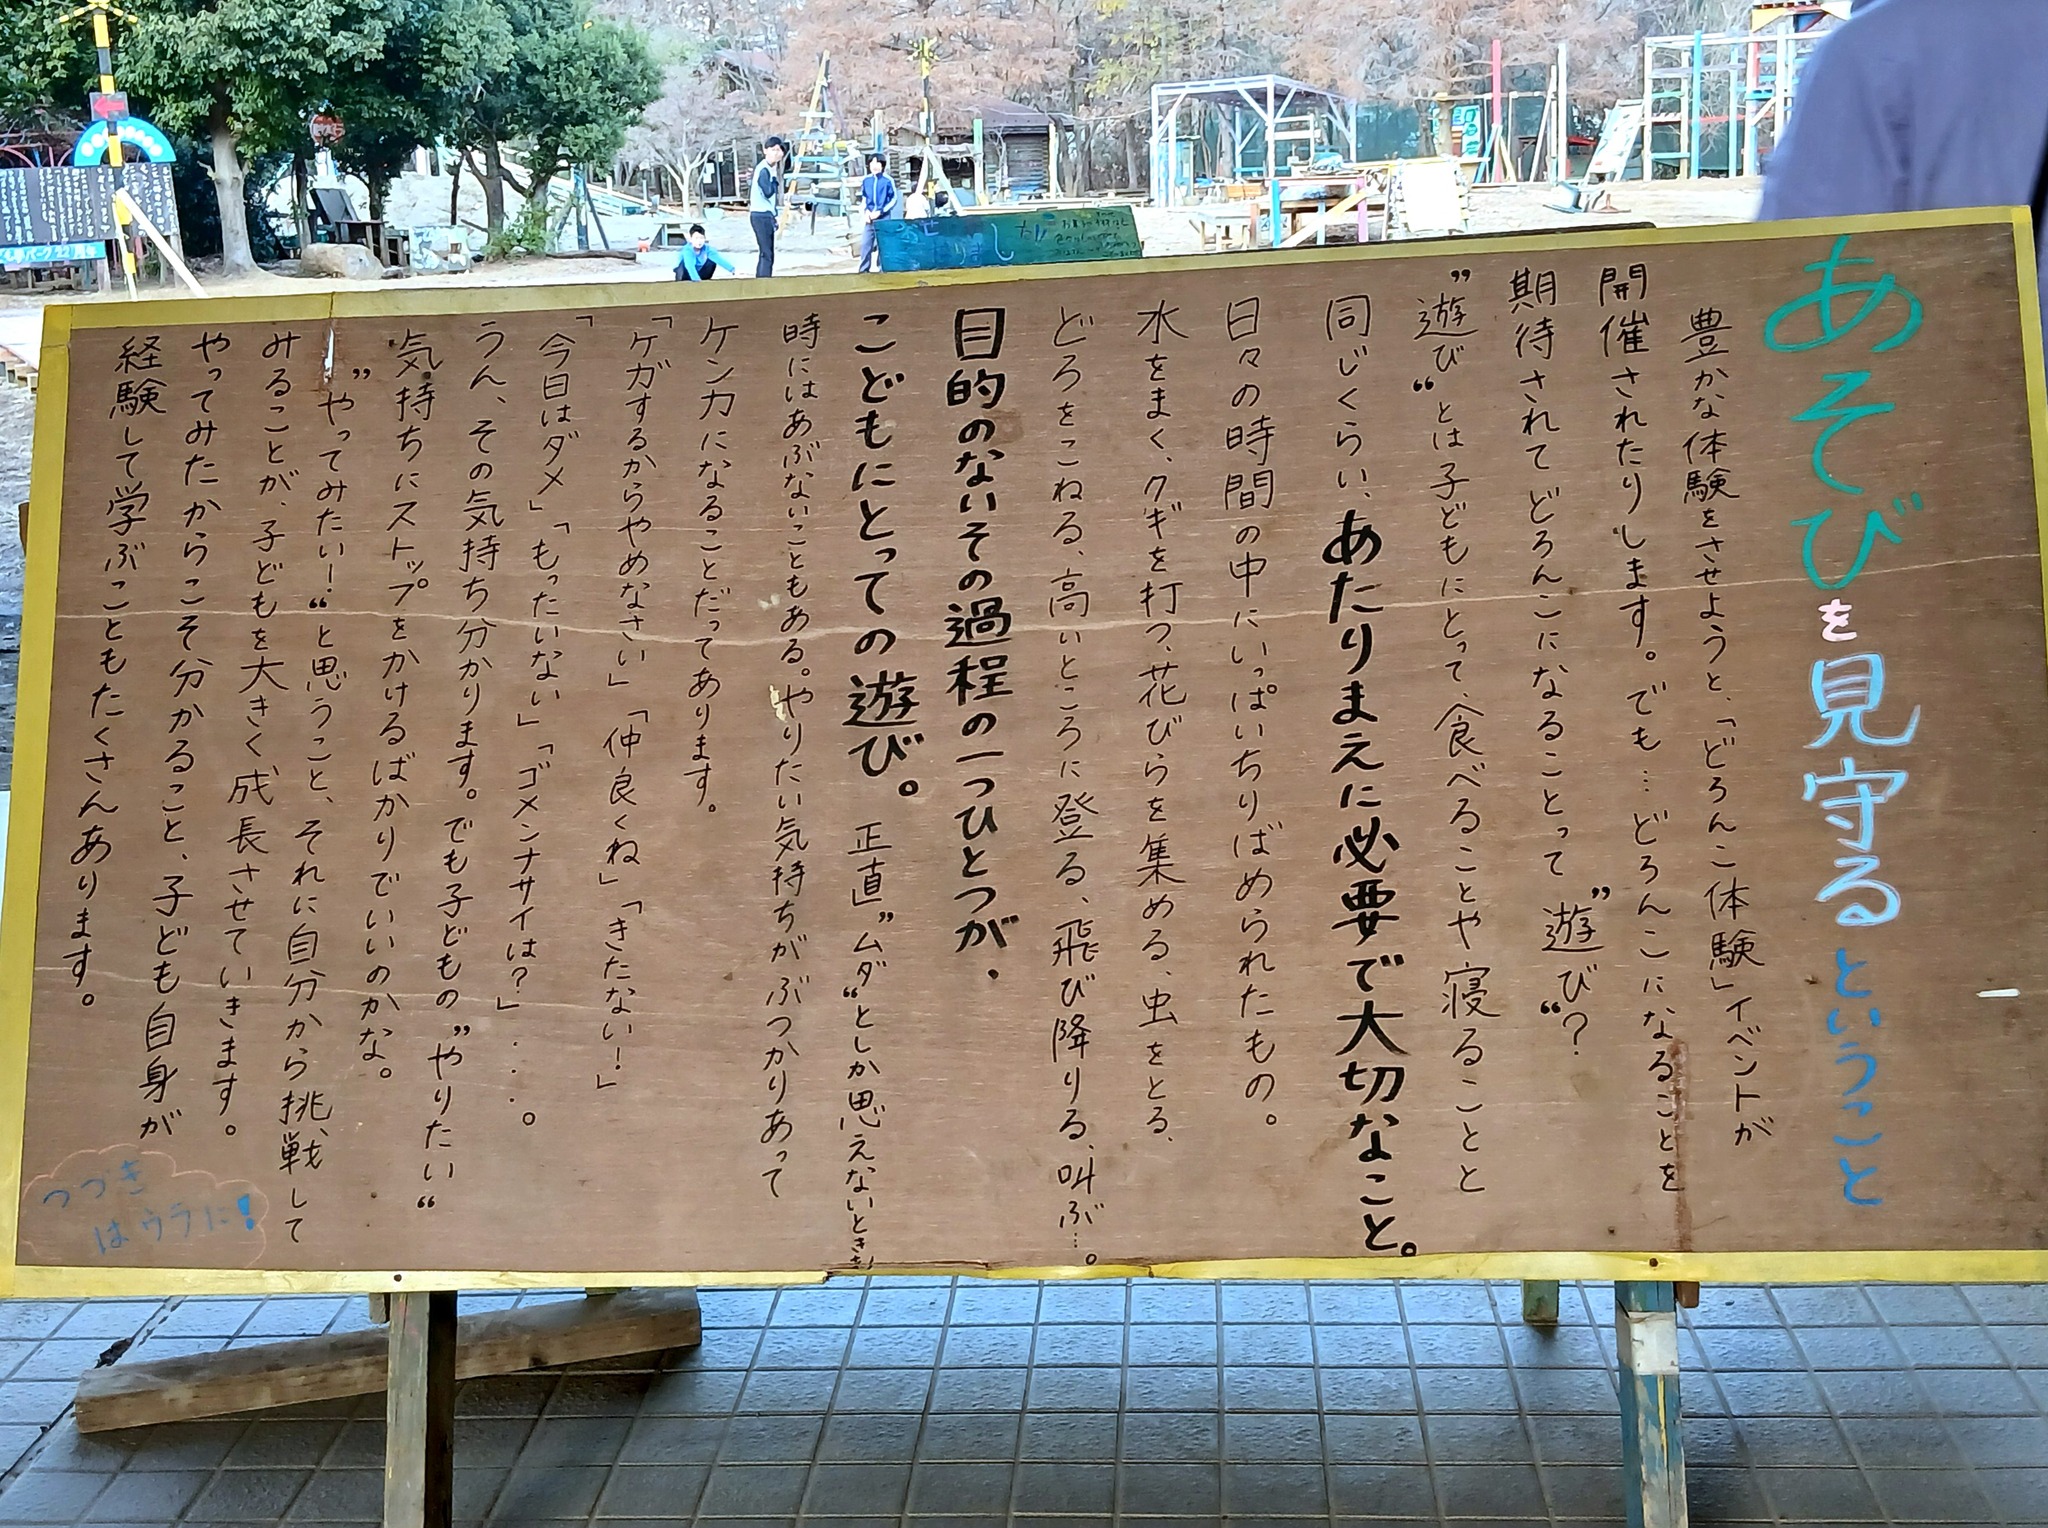 あそびを見守るということ
豊かな体験をさせようと、「どろんこ体験」イベントが
開催されたりします。でも…どろんこになることを
期待されてどろんこになることって”遊び“?
”遊び“とは子どもにとって、食べることや寝ることと
同じくらい、あたりまえに必要で大切なこと。
日々の時間の中にいっぱいちりばめられたもの。
水をまく、クギを打つ、花びらを集める、虫をとる、
どろをこねる、高いところに登る、飛び降りる、叫ぶ…。
目的のないその過程の一つひとつが、
こどもにとっての遊び。正直”ムダ“としか思えないときも
時にはあぶないこともある。やりたい気持ちがぶつかりあって
ケンカになることだってあります。
「ケガするからやめなさい」「仲良くね」「きたない!」
「今日はダメ」「もったいない」「ゴメンナサイは?」・・・。
うん、その気持ち分かります。でも子どもの”やりたい“
気持ちにストップをかけるばかりでいいのかな。
”やってみたい!“と思うこと、それに自分から挑戦して
みることが、子どもを大きく成長させていきます。
やってみたからこそ分かること、子ども自身が
経験して学ぶこともたくさんあります。
つづき
はウラに!